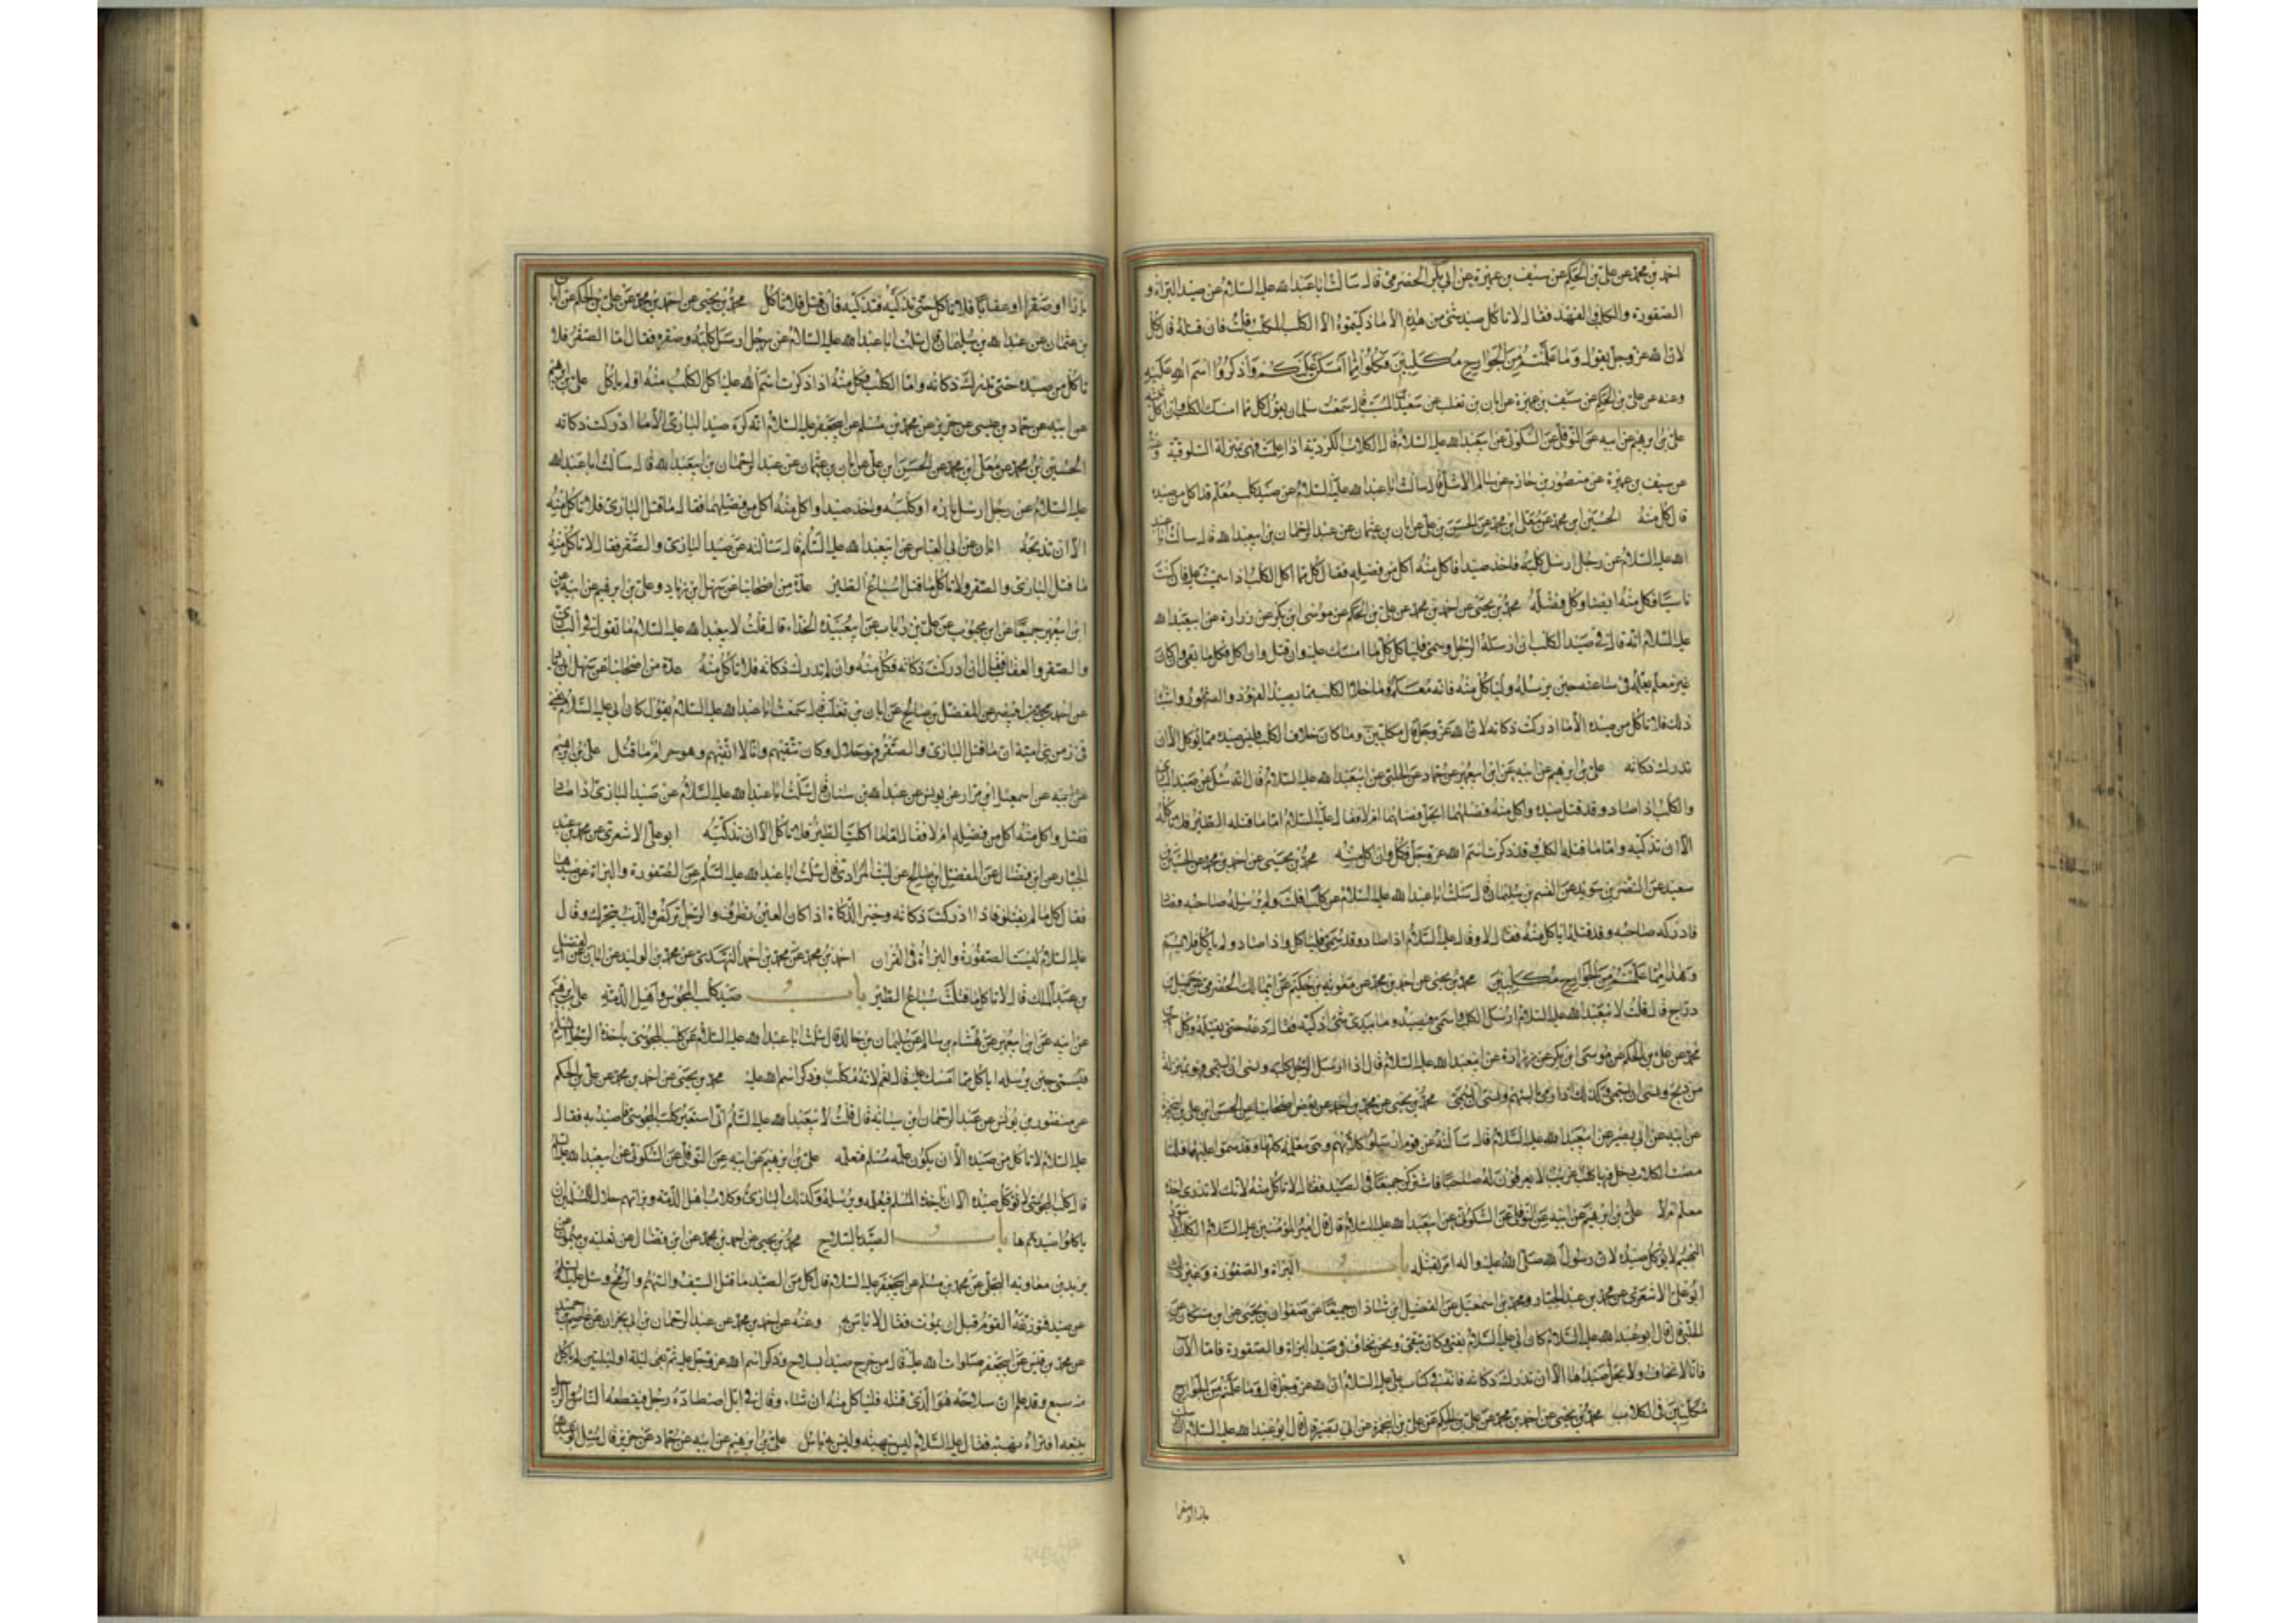 احمد بن محمد عن علي بن الحكم عن سيف بن عميرة عن ابي بكر الحضرمي قال سالت ابا عبد الله عليه السلام عن صيد البزاة و
الصقورة والكلب والفهد فقال لا تاكل صيد شئ من هذه الا ما ذكيتموه الا الكلب المكلب قلت فان قتله قال كل
لان الله عز وجل يقول وما علمتم من الجوارح مكلبين فكلوا مما امسكن عليكم واذكروا اسم الله عليه
وعنه عن علي بن الحكم عن سيف بن عميرة عن ابان بن تغلب عن سعيد بن المسيب قال سمعت سلمان يقول كل مما امسك الكلب وان اكل
علي بن ابرهيم عن ابيه عن النوفلي عن السكوني عن ابي عبد الله عليه السلام قال الكلاب الكردية اذا علمت فهي بمنزلة السلوقية
عن سيف بن عميرة عن منصور بن حازم عن سالم الاشل قال سالت ابا عبد الله عليه السلام عن صيد كلب معلم قد اكل من صيده
قال كل منه الحسين ابن محمد عن معلى ابن محمد عن الحسن بن علي عن ابان بن عثمان عن عبد الرحمان بن ابي عبد الله قال سالت ابا عبد
الله عليه السلام عن رجل ارسل كلبه فاخذ صيدا فاكل منه اكل من فضله فقال كل مما اكل الكلب اذا سميت عليه فان كنت
ناسيا فكل منه ايضا وكل فضله محمد بن يحيى عن احمد بن محمد عن علي بن الحكم عن موسى ابن بكر عن زرارة عن ابي عبد الله
عليه السلام انه قال في صيد الكلب ان ارسله الرجل وسمى فلياكل كل ما امسك عليه وان قتل وان اكل فكل ما بقي وان كان
غير معلم يعلمه في ساعته حين يرسله ولياكل منه فانه معلم وما خلا الكلب مما يصيد الفهود والصقور واشباه
ذلك فلا تاكل من صيده الا ما ادركت ذكاته لان الله عز وجل قال مكلبين وما كان خلاف الكلب فليس صيده مما يوكل الا ان
تدرك ذكاته علي بن ابرهيم عن ابيه عن ابن ابي عمير عن حماد عن الحلبي عن ابي عبد الله عليه السلام قال انه سئل عن صيد البازي
والكلب اذا صاد وقد قتل صيده واكل منه فضلهما ايحل فضلهما ام لا فقال عليه السلام اما ما قتله الطير فلا تاكله
الا ان تذكيه واما ما قتله الكلب وقد ذكرت اسم الله عز وجل فكل وان اكل منه محمد بن يحيى عن احمد بن محمد عن الحسين بن
سعيد عن النضر بن سويد عن القسم بن سليمان قال سالت ابا عبد الله عليه السلام عن كلب افلت ولم يرسله صاحبه فصاد
فادركه صاحبه وقد قتله اياكل منه فقال لا وقال عليه السلام اذا صاد وقد سمى فلياكل واذا صاد ولم يسم فلا ياكل
وهذا مما علمتم من الجوارح مكلبين محمد بن يحيى عن احمد بن محمد عن معوية بن حكيم عن ابي مالك الحضرمي عن جميل بن
دراج قال قلت لابي عبد الله عليه السلام ارسل الكلب واسمي فيصيد وما بيدي شئ اذكيه فقال دعه حتى يقتله وكل
محمد عن علي بن الحكم عن موسى ابن بكر عن زرارة عن ابي عبد الله عليه السلام قال اذا ارسل الرجل كلبه ونسى ان يسمي فهو بمنزلة
من ذبح ونسى ان يسمي وكذلك اذا رمى بالسهم ونسى ان يسمي محمد بن يحيى عن محمد بن احمد عن بعض اصحابنا عن الحسن ابن علي بن ابي حمزة
عن ابيه عن ابي بصير عن ابي عبد الله عليه السلام قال سالته عن قوم ارسلوا كلابهم وهي معلمة كلها وقد سموا عليها فلما
مضت الكلاب دخل فيها كلب غريب لا يعرفون له صاحبا فاشتركن جميعا في الصيد فقال لا تاكل منه لانك لا تدري اخذه
معلم ام لا علي بن ابرهيم عن ابيه عن النوفلي عن السكوني عن ابي عبد الله عليه السلام قال قال امير المؤمنين عليه السلام الكلب الاسود
البهيم لا يوكل صيده لان رسول الله صلى الله عليه واله امر بقتله باب البزاة والصقورة وغير ذلك
ابو علي الاشعري عن محمد بن عبد الجبار ومحمد بن اسمعيل عن الفضل ابن شاذان جميعا عن صفوان بن يحيى عن ابن مسكان عن
الحلبي قال قال ابو عبد الله عليه السلام كان ابي عليه السلام يفتي وكان يتقي ونحن نخاف في صيد البزاة والصقورة فاما الآن
فانا لا نخاف ولا يحل صيدها الا ان تدرك ذكاته فانه في كتاب علي عليه السلام ان الله عز وجل قال وما علمتم من الجوارح
مكلبين في الكلاب محمد بن يحيى عن احمد بن محمد عن علي بن الحكم عن علي بن ابي حمزة عن ابي بصير قال قال ابو عبد الله عليه السلام ان ارسلت
بازا او صقرا
بازا او صقرا او عقابا فلا تاكل حتى تذكيه فتذكيه فان قتل فلا تاكل محمد بن يحيى عن احمد بن محمد عن علي بن الحكم عن ابان
بن عثمان عن عبد الله بن سليمان قال سالت ابا عبد الله عليه السلام عن رجل ارسل كلبه وصقره فقال اما الصقر فلا
تاكل من صيده حتى تدرك ذكاته واما الكلب فكل منه اذا ذكرت اسم الله عليه اكل الكلب منه او لم ياكل علي بن ابرهيم
عن ابيه عن حماد بن عيسى عن حريز عن محمد بن مسلم عن ابي جعفر عليه السلام انه كره صيد البازي الا ما ادركت ذكاته
الحسين بن محمد عن معلى ابن محمد عن الحسن ابن علي عن ابان بن عثمان عن عبد الرحمان بن ابي عبد الله قال سالت ابا عبد الله
عليه السلام عن رجل ارسل بازه او كلبه واخذ صيدا واكل منه اكل من فضلهما فقال ما قتل البازي فلا تاكل منه
الا ان تذبحه ابان عن ابي العباس عن ابي عبد الله عليه السلام قال سالته عن صيد البازي والصقر فقال لا تاكل منه
ما قتل البازي والصقر ولا تاكل ما قتل سباع الطير عدة من اصحابنا عن سهل ابن زياد وعلي بن ابرهيم عن ابيه عن
ابن ابي عمير جميعا عن ابن محبوب عن علي بن رياب عن ابي عبيدة الحذاء قال قلت لابي عبد الله عليه السلام ما تقول في البازي
والصقر والعقاب فقال ان ادركت ذكاته فكل منه وان لم تدرك ذكاته فلا تاكل منه عدة من اصحابنا عن سهل ابن زياد
عن احمد بن محمد بن ابي نصر عن المفضل بن صالح عن ابان بن تغلب قال سمعت ابا عبد الله عليه السلام يقول كان ابي عليه السلام يفتي
في زمن بني امية ان ما قتل البازي والصقر فهو حلال وكان يتقيهم وانا لا اتقيهم وهو حرام ما قتل علي بن ابرهيم
عن ابيه عن اسمعيل ابن مرار عن يونس عن عبد الله بن سنان قال سالت ابا عبد الله عليه السلام عن صيد البازي اذا صاد
فقتل واكل منه اكل من فضله ام لا فقال اما ما اكلت الطير فلا تاكل الا ان تذكيه ابو علي الاشعري عن محمد بن عبد
الجبار عن ابن فضال عن المفضل ابن صالح عن ليث المرادي قال سالت ابا عبد الله عليه السلام عن الصقورة والبزاة عن صيدها
فقال كل ما لم يقتلن اذا ادركت ذكاته وخير الذكاة اذا كان العين تطرف والرجل تركض والذنب يتحرك وقال
عليه السلام ليست الصقورة والبزاة في القران احمد بن محمد عن محمد بن احمد النهدي عن محمد بن الوليد عن ابان عن الفضل
بن عبد الملك قال لا تاكل ما قتلت سباع الطير باب صيد كلب المجوس واهل الذمة علي بن ابرهيم
عن ابيه عن ابن ابي عمير عن هشام بن سالم عن سليمان بن خالد قال سالت ابا عبد الله عليه السلام عن كلب المجوسي ياخذه الرجل المسلم
فيسمي حين يرسله اياكل مما امسك عليه قال نعم لانه مكلب وذكر اسم الله عليه محمد بن يحيى عن احمد بن محمد عن علي بن الحكم
عن منصور بن يونس عن عبد الرحمان ابن سيابة قال قلت لابي عبد الله عليه السلام اني استعير كلب المجوسي فاصيد به فقال
عليه السلام لا تاكل من صيده الا ان يكون علمه مسلم فتعلمه علي بن ابرهيم عن ابيه عن النوفلي عن السكوني عن ابي عبد الله عليه السلام
قال كلب المجوسي لا توكل صيده الا ان ياخذه المسلم فيعلمه ويرسله وكذلك البازي وكلاب اهل الذمة وبزاتهم حلال للمسلمين ان
ياكلوا صيدها باب الصيد بالسلاح محمد بن يحيى عن احمد بن محمد عن ابن فضال عن ثعلبة بن ميمون عن
بريد بن معاوية العجلي عن محمد بن مسلم عن ابي جعفر عليه السلام قال كل من الصيد ما قتل السيف والسهم والرمح وسئل عليه السلام
عن صيد فتوزعه القوم قبل ان يموت فقال لا باس به وعنه عن احمد بن محمد عن عبد الرحمان بن ابي نجران عن عاصم بن حميد
عن محمد بن قيس عن ابي جعفر صلوات الله عليه قال من جرح صيدا بسلاح وذكر اسم الله عز وجل عليه ثم بقي ليلة او ليلتين لم ياكل
منه سبع وقد علم ان سلاحه هو الذي قتله فلياكل منه ان شاء وقال في ايل اصطاده رجل فيقطعه الناس والرجل
يتبعه افتراه نهبة فقال عليه السلام ليس بنهبة وليس به باس علي بن ابرهيم عن ابيه عن حماد عن حريز قال سئل ابو عبد